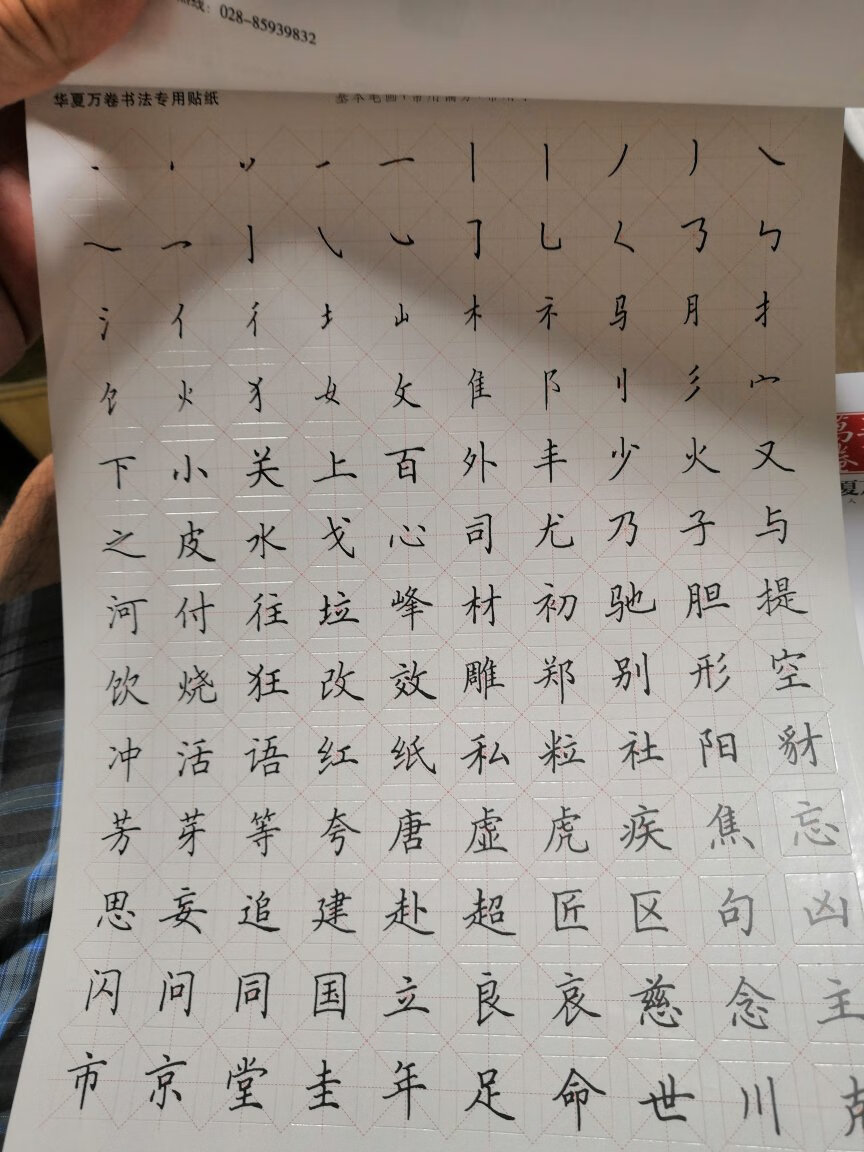 热线: 028-85939832
华夏万卷书法专用贴纸
丶 丶 丷 一 一 丨 丨 丿 丿 ㇏
㇏ 乛 亅 ㇂ ㇃ ㇆ 乚 𡿨 ㇋ ㇉
氵 亻 彳 土 山 木 礻 马 月 扌
饣 火 犭 女 攵 隹 阝 刂 彡 宀
下 小 关 上 百 外 丰 少 火 又
之 皮 水 戈 心 司 尤 乃 子 与
河 付 往 垃 峰 材 初 驰 胆 提
饮 烧 狂 改 效 雕 郑 别 形 空
冲 活 语 红 纸 私 粒 社 阳 豺
芳 芽 等 夸 唐 虚 虎 疾 焦 忘
思 妄 追 建 赴 超 匠 区 句 凶
闪 问 同 国 立 良 哀 慈 念 主
市 京 堂 圭 年 足 命 世 川